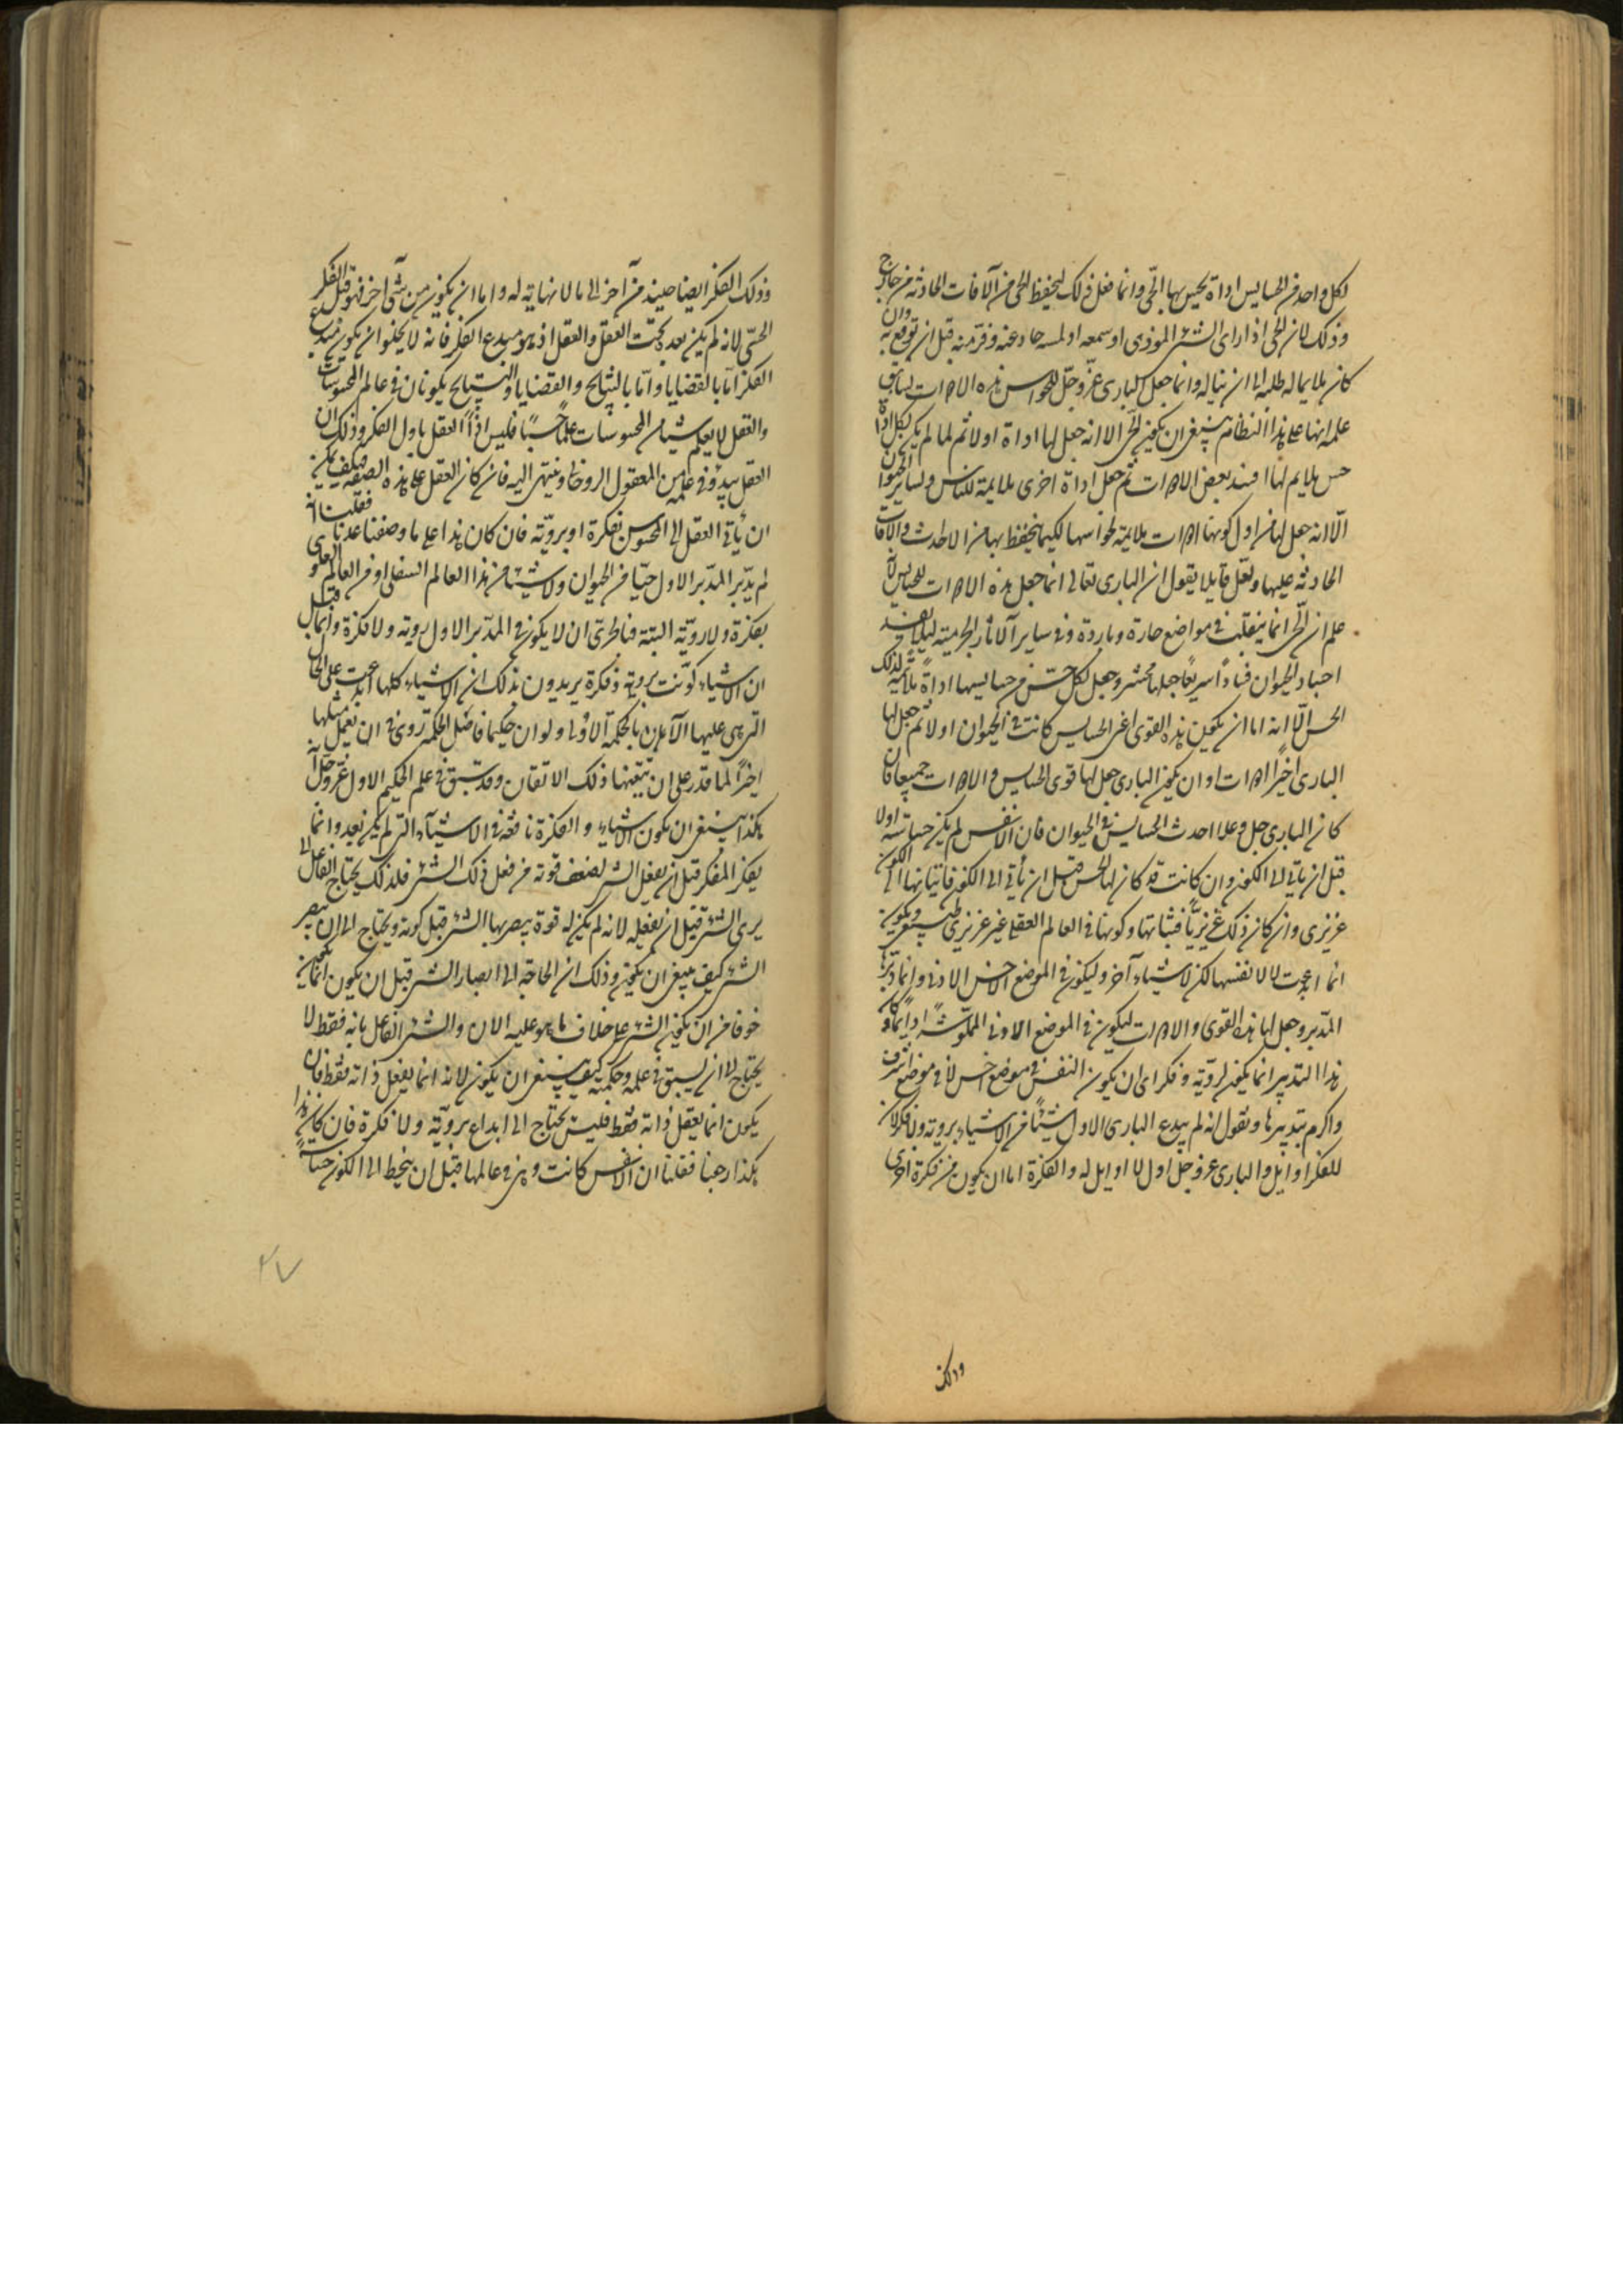 لكل واحد من الحسايس اداة يحس بها الحي وانما فعل ذلك ليحفظ الحي من الآفات الحادثة من خارج
وذلك لان الحي اذا راى الشئ الموذى او سمعه او لمسه حاد عنه وفر منه قبل ان يوقع به وان
كان ملايما له طلبه الى ان يناله وانما جعل البارى عز وجل للحواس هذه الادوات لسابق
علمه انها على هذا النظام ينبغى ان يكون الحى الا انه جعل لها اداة اولا ثم لما لم يكن لكل اداة
حس ملايم لها افسد بعض الادوات ثم جعل اداة اخرى ملايمة للناس ولساير الحيوان
الّا انه جعل لها من اول كونها ادوات ملايمة لحواسها لكيما يتحفظ بها من الاحداث والآفات
الحادثة عليها ولعل قايلا يقول ان البارى تعالى انما جعل هذه الادوات للحسايس لانه
علم ان الحى انما ينقلب فى مواضع حارة وباردة وفى ساير الآثار الجرمية ليلا يفسد
اجساد الحيوان فسادا سريعا جعلها تحس وجعل لكل حس من حسايسها اداة ملايمة لذلك
الحس الّا انه اما ان يكون هذه القوى اعنى الحسايس كانت فى الحيوان اولا ثم جعل لها
البارى اخيرا ادوات او ان يكون البارى جعل لها قوى الحسايس والادوات جميعا فان
كان البارى جل وعلا احدث الحسايس فى الحيوان فان الانفس لم يكن حساسة اولا
قبل ان ياتى الى الكون وان كانت قد كان لها الحس قبل ان يأتى الى الكون فاتيانها الى الكون
غريزى وان كان ذلك غريزيّا فثباتها وكونها فى العالم العقلى غير غريزى طبيعى ويكون
انما ابدعت لا لانفسها لكن لاشياء آخر وليكون فى الموضع الاخس الادنى وانما دبرها
المدبر وجعل لها هذه القوى والادوات ليكون فى الموضع الادنى المملو شرا دايما وكان
هذا التدبير انما يكون لروية وفكر اى ان يكون النفس فى موضع اخس لا فى موضع اشرف
واكرم بتدبيرها ونقول انه لم يبدع البارى الاول شيئا من الاشياء بروية ولا فكر لان
للفكر اوايل والبارى عز وجل اول لا اوايل له والفكرة اما ان يكون من فكرة اخرى
وذلك
وذلك الفكر ايضا حينئذ من آخر الى ما لا نهاية له واما ان يكون من شئ آخر فهو قبل الفكر
الحسّى لانه لم يكن بعده تحت العقل والعقل اذ هو مبدع الفكر فانه لا يخلو ان يكون مبدع
الفكر اما بالقضايا واما بالنتايج والقضايا والنتايج يكونان فى عالم المحسوسات
والعقل لا يعلم شيئا من المحسوسات علما حسيا فليس اذا العقل باول الفكر وذلك ان
العقل يبدؤ فى علمه من المعقول الروحانى وينتهى اليه فان كان العقل على هذه الصفة فكيف يمكن
ان يأتى العقل الى المحسوس بفكرة او بروية فان كان هذا على ما وصفنا عدنا فقلنا انه
لم يدبر المدبر الاول حيا من الحيوان ولا شيئا من هذا العالم السفلى او فى العالم العلوى
بفكرة ولا روية البتة فبالحرى ان لا يكون فى المدبر الاول روية ولا فكرة وانما قيل
ان الاشياء كونت بروية وفكرة يريدون بذلك ان الاشياء كلها ابدعت على الحال
التى هى عليها الآن بالحكمة الاولى ولو ان حكيما فاضل الحكمة روى فى ان يعمل مثلها
اخيرا لما قدر على ان يتقنها ذلك الاتقان وقد سبق فى علم الحكيم الاول عز وجل انه
هكذا ينبغى ان يكون الاشياء والفكرة نافعة فى الاشياء التى لم يكن بعد وانما
يفكر المفكر قبل ان يفعل الشئ لضعف قوته من فعل ذلك الشئ فلذلك يحتاج الفاعل الى
يرى الشئ قبل ان يفعله لانه لم يكن له قوة يبصر بها الشئ قبل كونه ويحتاج الى ان يبصر
الشئ كيف ينبغى ان يكون وذلك ان الحاجة الى ابصار الشئ قبل ان يكون انما يكون
خوفا من ان يكون الشئ على خلاف ما هو عليه الان والشئ الفاعل بانه فقط لا
يحتاج الى ان يسبق فى علمه وحكمته كيف ينبغى ان يكون لانه انما يفعل ذاته فقط فان
يكون انما يعقل ذاته فقط فليس يحتاج الى ابداع بروية ولا فكرة فان كان هذا
هكذا رجعنا فقلنا ان الانفس كانت وهى فى عالمها قبل ان ينحط الى الكون حساسة
٢٧